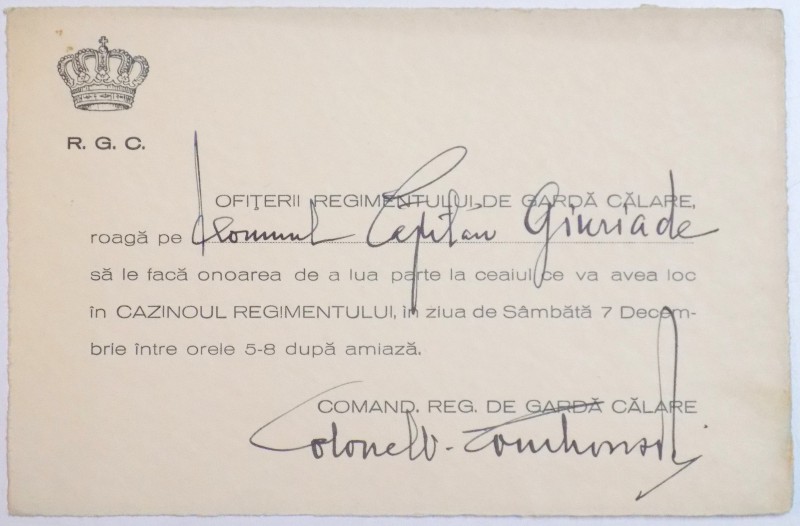 R. G. C.
OFIŢERII REGIMENTULUI DE GARDĂ CĂLARE,
roagă pe Domnul Capitan Giuriade
să le facă onoarea de a lua parte la ceaiul ce va avea loc
în CAZINOUL REGIMENTULUI, în ziua de Sâmbătă 7 Decem-
brie între orele 5-8 după amiază.
COMAND. REG. DE GARDĂ CĂLARE
Colonel